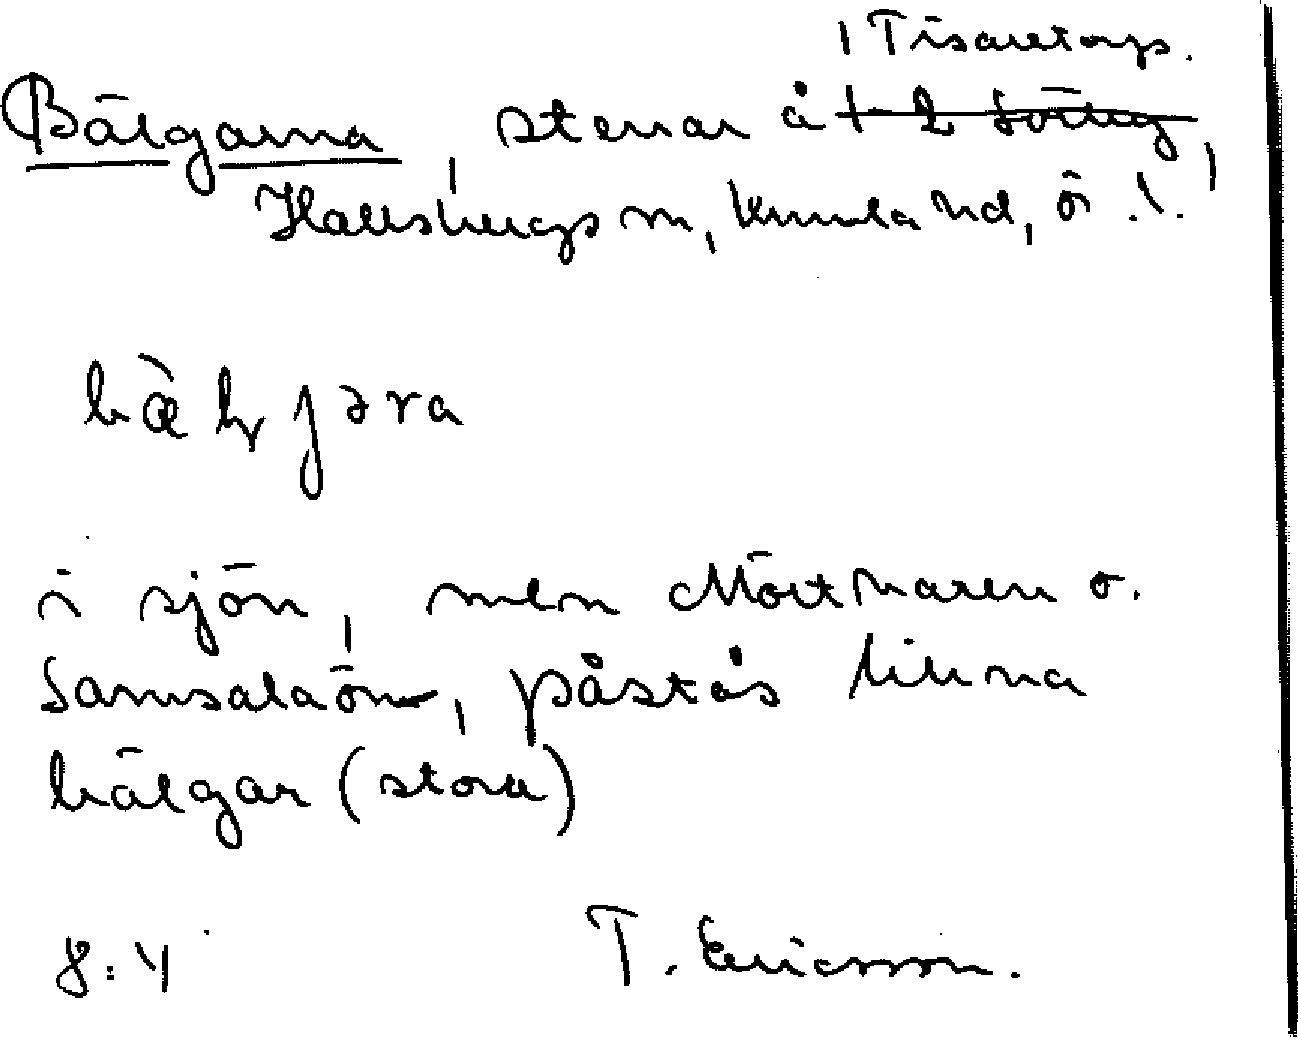 1 Tisaretorps.
Bälgarna, stenar å 1-2 Sörby,
Hallsbergs sn, Kumla hd, ö.l.
bæ̀ljəra
i sjön, mell Mörtharen o.
Samsalaön, påstås likna
bälgar (stora)
8:4 T. Ericsson.